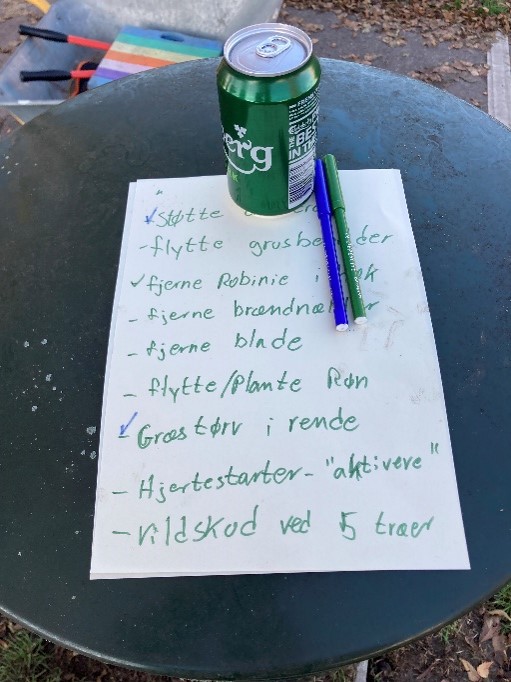 erg
THE BE
IN TH
✓ Støtte
- flytte grusbe der
✓ fjerne Robinie i
- fjerne brændnæ er
- fjerne blade
- flytte/Plante Røn
- Græstørv i rende
- Hjertestarter - "aktivere"
- Vildskud ved 5 træer